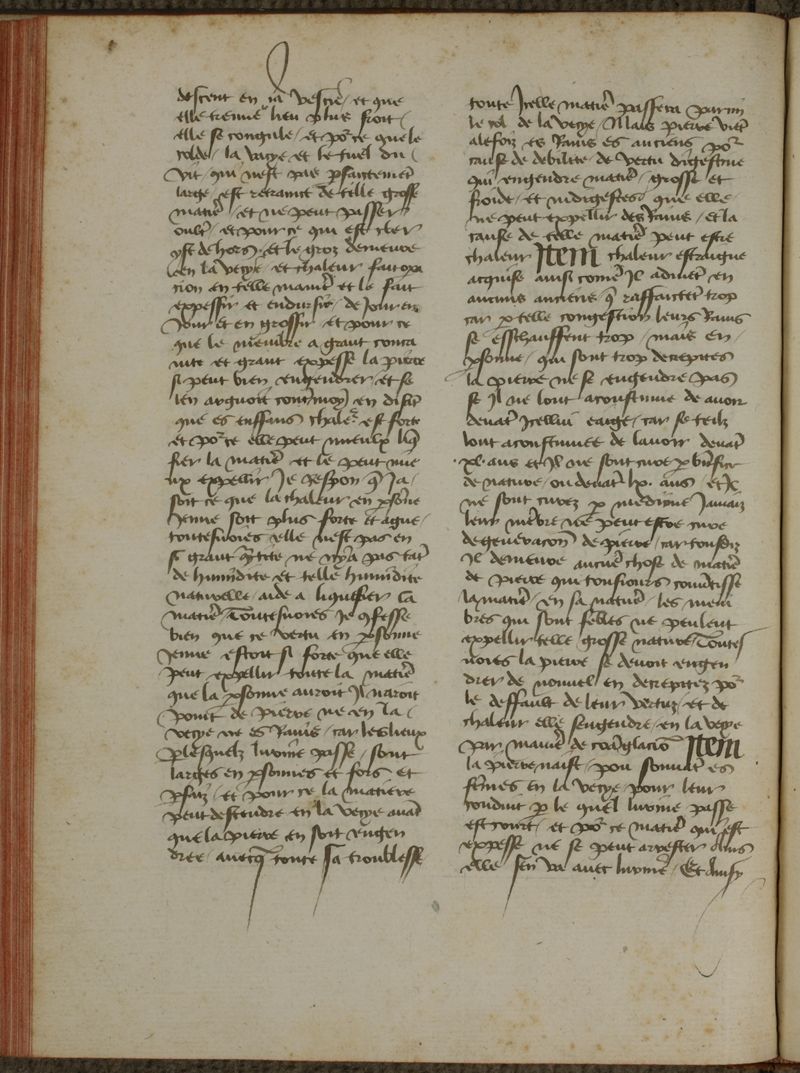 descent en la vescie / et que
elle treuue lieu plus froit /
elle se congule / et po^r ce que le
colde / la vecye et le tuel du
vit / qui nest pas pfaictemet
large / est retrainct de telle grosse
matie / et ne peut passer
oult / et pour ce qui est cler
yst dehors / et le groz demeure
en la vecye et chaleur fait opa
cion en telle manie et le fait
expessir et endursir / de Jour en
Jour et en grossir et pour ce
que le membre a grant conca
uite et grant expesse la pierre
si peut bien engendrer / et se
len arguoit cont moy en disat
que es enffans chale^r est forte
et po^r ce elle peut mieulx liq
fier la matie et le peut mie
ux expellir Je respon q Ja /
soit ce que la chaleur en psone
Jenne soit plus forte et ague /
toutesuoies elle nest pas en
si grant qtite ne nya pas tat
de humidite et telle humidite
naturelle aide a liquefier la
matie Toutesuoies Je cfesse
bien que se vertu en psonne
Jenne estoit si forte que elle
peut expellir toute la matie
que la psonne auroit Il naroit
point de pierre ne en la /
vecye ne es Rains / car les lieux
p lesquelz lurine passe / sont
larges en psonnes et fors et
pfuz / et pour ce la matiere
peut descendre en la vecye auat
que la pierre en soit engen
dree / auecq toute sa troublesse
toute Icelle matie passera parmi
le col de la vecye / Mais pierre viet
alefoiz es Rains es anciens po^r
cause de debilite de vertu digestiue
qui engendre matie / grosse et
froide / et indigestee / que elle
ne peut expellir des Rains / et la
cause de telle matie peut estre
chaleur Item chaleur estrangne
acquise ainsi come Il aduiet en
aucuns anciens q raffaictet trop
car p telle congestion leurs Rains
se esschauffent trop / mais en /
psonne / qui sont trop decrepites
la pierre ne se engendre pas
se Il ne lont acoustume de auoir
deuat Icellui eaige / car se telz
lont acoustumee de lauoir deuat
.xl. ans et Il ne sont cure p bnfice
de nature / ou deuat lx. ans / et Il
ne sont curez p medicine Jamaiz
leur mebre ne peut estre cure
de generacon de pierre / car tousdiz
Il demeure aucune chose de matie
de pierre qui tousiours couertisse
la matie / en sa natue / les mem
bres qui sont febles ne peulent
expellir telle grosse nature Toutes
uoies la pierre se deuoit engen
drer de nouuel en decrepitez po^r
le deffault de leur vertuz / et de
chaleur elle sengendre / en la vecye
par manie de coglacion Item
la pierre naist / pou souuat es
femes en la vecye pour leur
conduit p le quel lurine passe
est court / et po^r ce matie qui est
expesse ne se peut arrester ains
elle sen va auec lurine / Et Ainsy